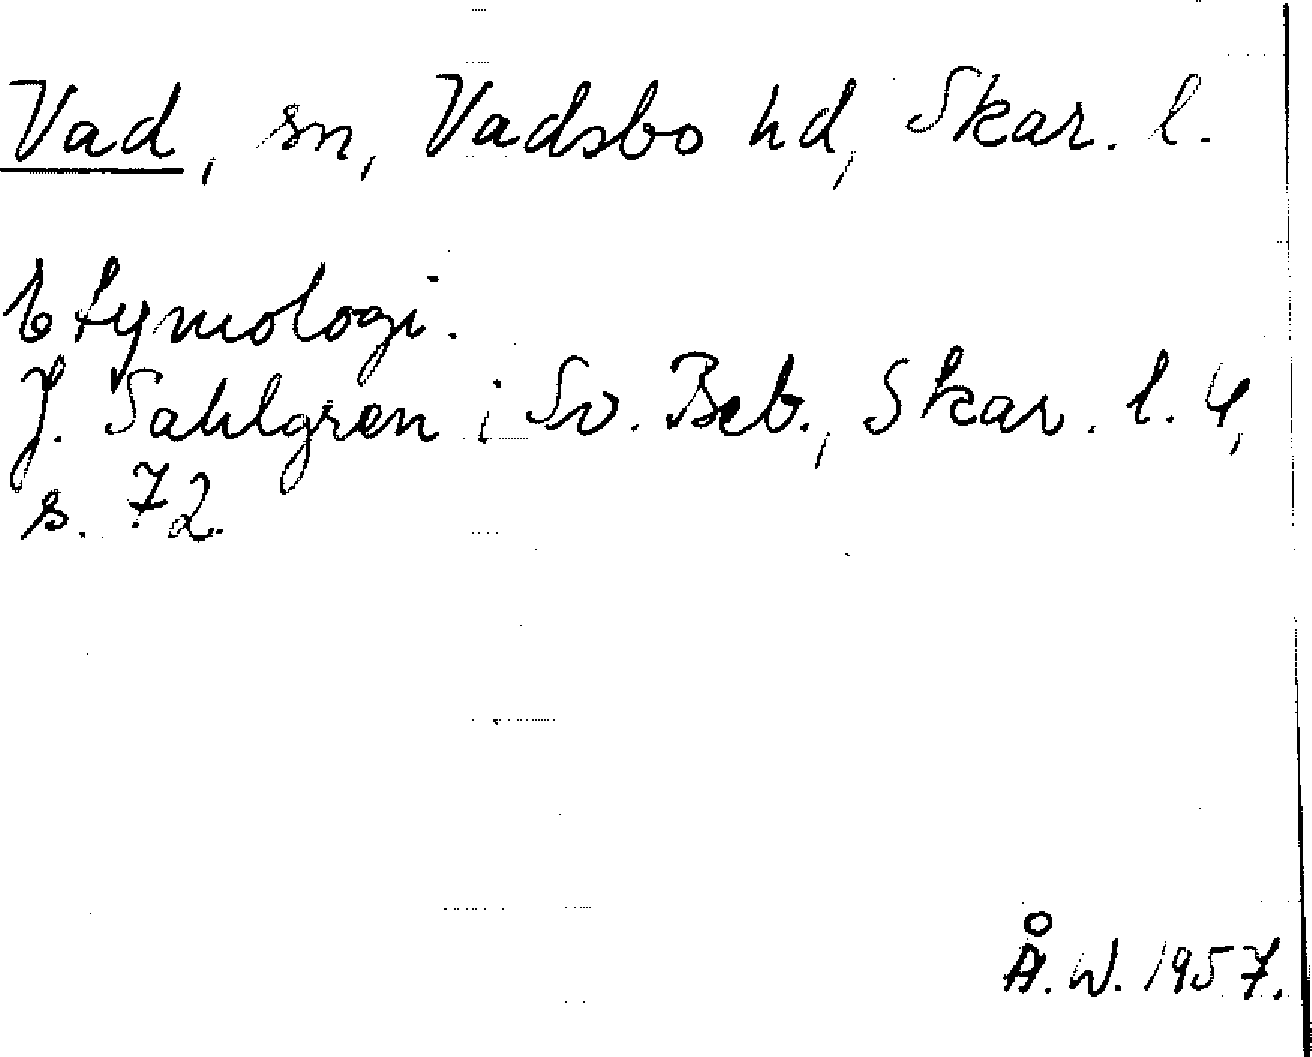 Vad, sn, Vadsbo hd, Skar. l.
Etymologi.
J. Sahlgren i Sv. Beb., Skar. l. 4,
s. 72.
Å. W. 1957.